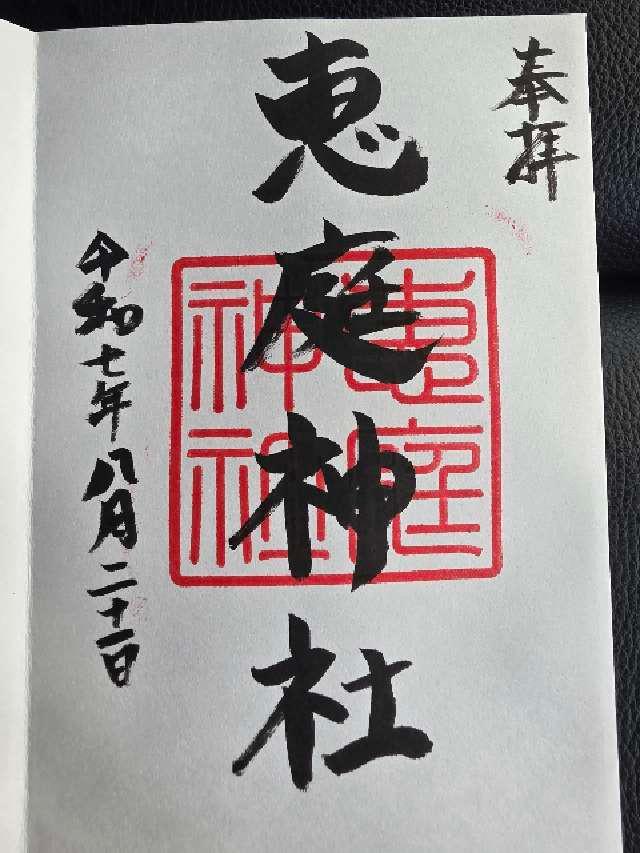 奉拝
恵庭神社
恵庭神社
令和七年八月二十一日